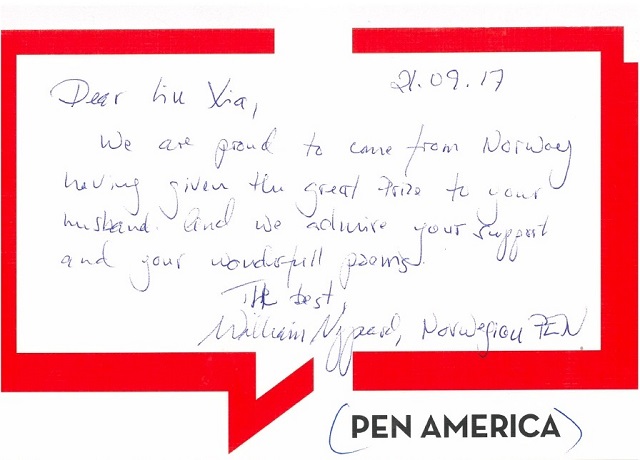 Dear Liu Xia, 21.09.17
We are proud to come from Norway
having given the great Prize to your
husband. And we admire your support
and your wonderfull poems.
The best,
William Nygaard, Norwegian PEN
(PEN AMERICA)